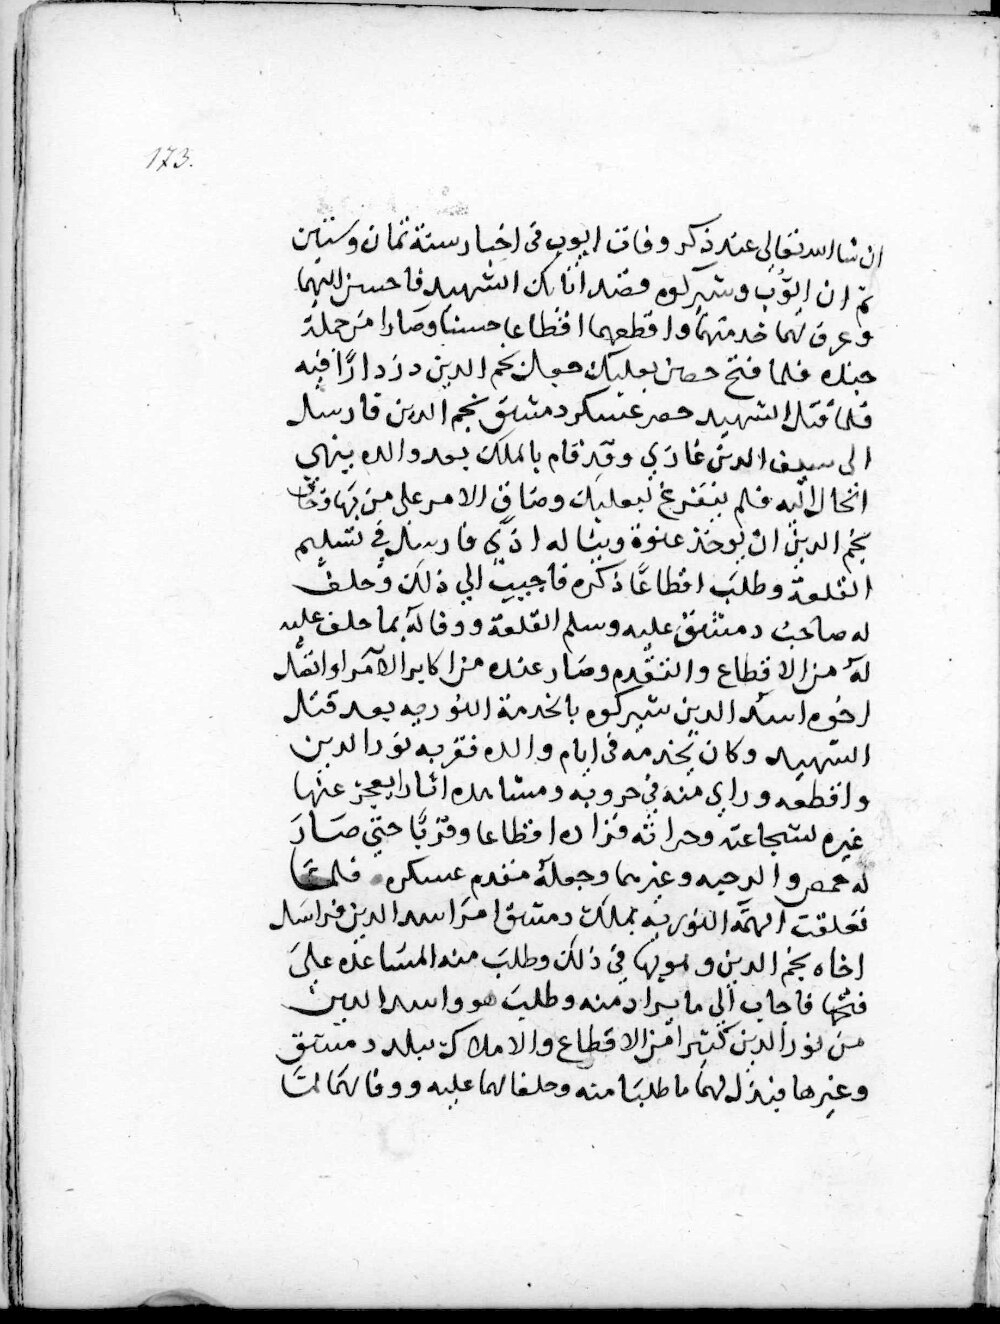 173.
ان شا الله تعالى عند ذكر وفات ايوب فى اخبار سنة ثمان وستين
ثم ان ايوب وشيركوه قصدا اتابك الشهيد فاحسن اليهما
وعرف لهما خدمتهما واقطعهما اقطاعا حسنا وصارا من جملة
جنده فلما فتح حصن بعلبك جعل نجم الدين دزدارا فيه
فلما قتل الشهيد حصر عسكر دمشق نجم الدين فارسل
الى سيف الدين غازي وقد قام بالملك بعد والده ينهي
الحال اليه فلم يتفرغ لبعلبك وضاق الامر على من بها وخاف
نجم الدين ان يوخذ عنوة ويناله اذي فارسل في تسليم
القلعة وطلب اقطاعا ذكره فاجيب الي ذلك وحلف
له صاحب دمشق عليه وسلم القلعة ووفا له بما حلف عليه
له من الاقطاع والتقدم وصار عنده من اكابر الامراو اتصل
اخوه اسد الدين شيركوه بالخدمة النوريه بعد قتل
الشهيد وكان يخدمه فى ايام والده فقربه نور الدين
واقطعه وراي منه في حروبه ومشاهده اثارا يعجز عنها
غيره لشجاعته وجراته فزاده اقطاعا وقربا حتي صار
له حمص والرحبه وغيرهما وجعله مقدم عسكره فلما
تعلقت الهمه النوريه بملك دمشق امر اسد الدين فراسل
اخاه نجم الدين وهو بها في ذلك وطلب منه المساعده علي
فتحها فاجاب الي ما يراد منه وطلب هو واسد الدين
من نور الدين كثيرا من الاقطاع والاملاك ببلد دمشق
وغيرها فبذل لهما ما طلبا منه وحلف لهما عليه ووفا لهما لما